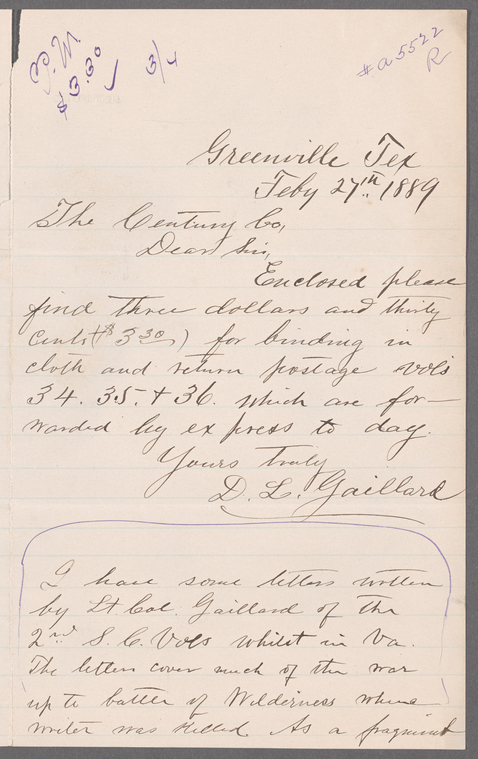 P.M.
$3.30
3/4
#a5522
R
Greenville Tex
Feby 27th 1889
The Century Co,
Dear Sir,
Enclosed please
find three dollars and thirty
cents ($3 30) for binding in
cloth and return postage vols
34. 35. + 36. which are for—
warded by express to day.
Yours truly
D. L. Gaillard
I have some letters written
by Lt Col. Gaillard of the
2nd S. C. Vols whilst in Va.
The letters cover much of the war
up to battle of Wilderness where
writer was killed. As a fragment